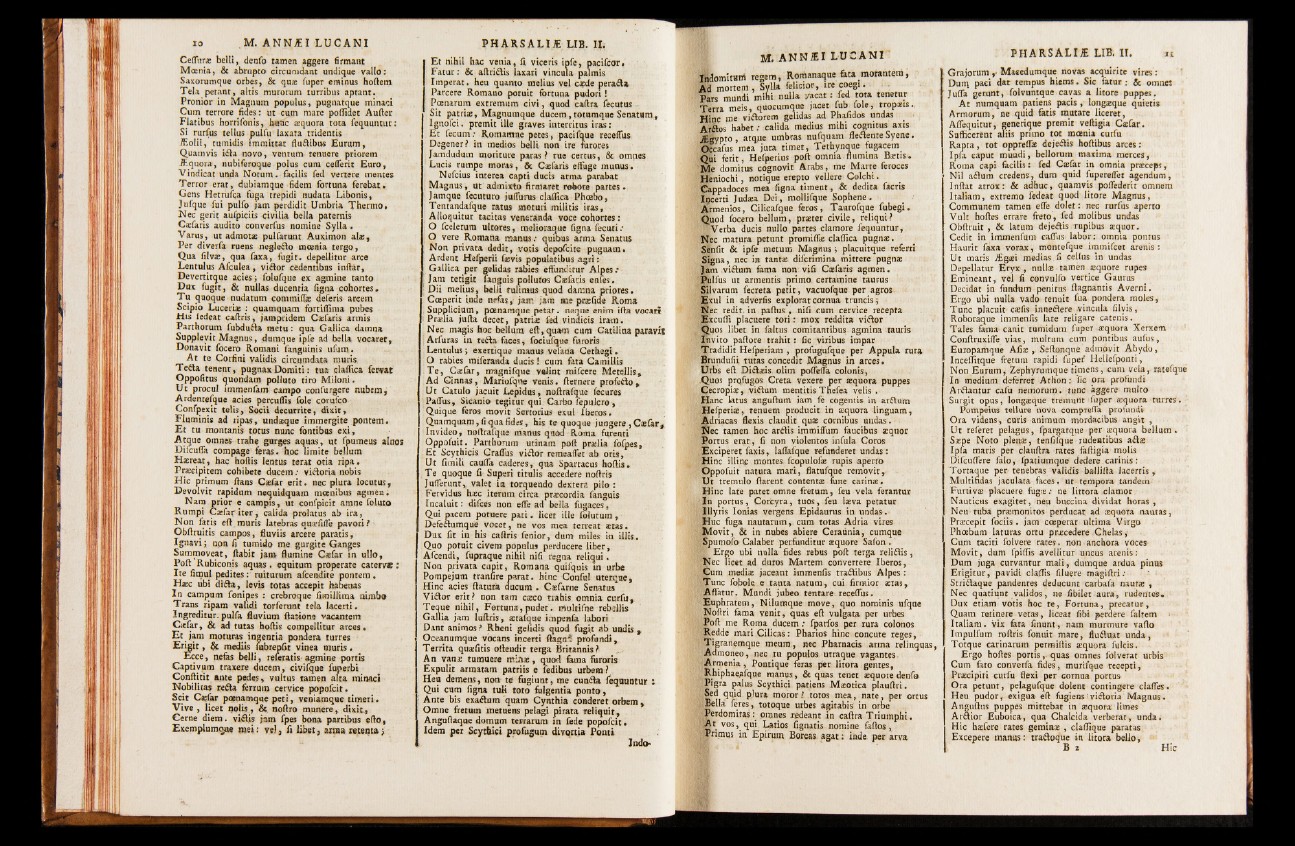 10 M. ANNÆI LUCANI
Cessuræ belli, denso tamen aggere firmant
Mœnia, & abrupto circumdant undique vallo:
Saxorumque orbes, & quæ super eminus hostem
Tela petant, altis murorum turribus aptant.
Pronior in Magnum populus, pugnatque minaci
Cum terrore fides: ut cum mare possidet Auster
Flatibus horrisonis, hunc æquora tota sequuntur:
Si rursus tellus pulsu laxata tridentis
Æolii, tumidis immittat fluctibus Eurum,
Quamvis icta novo, ventum tenuere priorem
Æquora, nubiferoque polus cum cesserit Euro,
Vindicat unda Notum. facilis sed vertere mentes
Terror erat, dubiamque fidem fortuna ferebat.
Gens Hetrusca fuga trepidi nudata Libonis,
Jusque sui pulso jam perdidit Umbria Thermo.
Nec gerit auspiciis civilia bella paternis
Cæsaris audito conversus nomine Sylla.
Varus, ut admotæ pulsarunt Auximon alæ,
Per diversa ruens neglecto mœnia tergo,
Qua silvæ, qua saxa, fugit. depellitur arce
Lentulus Asculea, victor cedentibus instat,
Devertitque acies; solusque ex agmine tanto
Dux fugit, & nullas ducentia signa cohortes.
Tu quoque nudatum commissæ deseris arcem
Scipio Luceriæ: quamquam fortissima pubes
His sedeat castris, jampridem Cæsaris armis
Parthorum subducta metu: qua Gallica damna
Supplevit Magnus, dumque ipse ad bella vocaret,
Donavit socero Romani sanguinis usum.
At te Corfini validis circumdata muris
Tecta tenent, pugnax Domiti: tua classica servat
Oppositus quondam polluto tiro Miloni.
Ut procul immensam campo consurgere nubem,
Ardentesque acies percussis sole corusco
Conspexit telis, Socii decurrite, dixit,
Fluminis ad ripas, undæque immergite pontem.
Et tu montanis totus nunc fontibus exi,
Atque omnes trahe gurges aquas, ut spumeus alnos
Discussa compage feras. hoc limite bellum
Hæreat, hac hostis lentus terat otia ripa.
Præcipitem cohibete ducem: victoria nobis
Hic primum stans Cæsar erit. nec plura locutus,
Devolvit rapidum nequidquam mœnibus agmen.
Nam prior e campis, ut conspicit amne soluto
Rumpi Cæsar iter, calida prolatus ab ira,
Non satis est muris latebras quæsisse pavori?
Obstruitis campos, fluviis arcere paratis,
Ignavi; non si tumido me gurgite Ganges
Summoveat, stabit jam flumine Cæsar in ullo,
Post Rubiconis aquas. equitum properate catervæ:
Ite simul pedites: ruiturum ascendite pontem.
Hæc ubi dicta, levis totas accepit habenas
In campum sonipes: crebroque simillima nimbo
Trans ripam validi torserunt tela lacerti.
Ingreditur. pulsa fluvium statione vacantem
Cæsar, & ad tutas hostis compellitur arces.
Et jam moturas ingentia pondera turres
Erigit, & mediis subrepsit vinea muris.
Ecce, nefas belli, reseratis agmine portis
Captivum traxere ducem, civisque superbi
Constitit ante pedes, vultus tamen alta minaci
Nobilitas recta ferrum cervice poposcit.
Scit Cæsar pœnamque peti, veniamque timeri.
Vive, licet nolis, & nostro munere, dixit,
Cerne diem. victis jam spes bona partibus esto,
Exemplumque mei: vel, si libet, arma retenta;
PHARSALIÆ LIB. II.
Et nihil hac venia, si viceris ipse, paciscor.
Fatur: & astrictis laxari vincula palmis
Imperat. heu quanto melius vel cæde peracta
Parcere Romano potuit fortuna pudori!
Pœnarum extremum civi, quod castra secutus
Sit patriæ, Magnumque ducem, totumque Senatum,
Ignosci. premit ille graves interritus iras:
Et secum: Romamne petes, pacisque recessus
Degener? in medios belli non ire furores
Jamdudum moriture paras? rue certus, & omnes
Lucis rumpe moras, & Cæsaris effuge munus.
Nescius interea capti ducis arma parabat
Magnus, ut admixto firmaret robore partes.
Jamque secuturo jussurus classica Phœbo,
Tentandasque ratus moturi militis iras,
Alloquitur tacitas veneranda voce cohortes:
O scelerum ultores, melioraque signa secuti:
O vere Romana manus: quibus arma Senatus
Non privata dedit, votis deposcite pugnam.
Ardent Hesperii sævis populatibus agri:
Gallica per gelidas rabies effunditur Alpes:
Jam tetigit sanguis pollutos Cæsaris enses.
Dii melius, belli tulimus quod damna priores.
Cœperit inde nefas, jam jam me præside Roma
Supplicium, pœnamque petat. neque enim ista vocari
Prælia justa decet, patriæ sed vindicis iram.
Nec magis hoc bellum est, quam cum Catilina paravit
Arsuras in tecta faces, sociusque furoris
Lentulus; exertique manus vesana Cethegi.
O rabies miseranda ducis! cum fata Camillis
Te, Cæsar, magnisque velint miscere Metellis,
Ad Cinnas, Mariosque venis. sternere profecto,
Ut Catulo jacuit Lepidus, nostrasque secures
Passus, Sicanio tegitur qui Carbo sepulcro,
Quique feros movit Sertorius exul Iberos.
Quamquam, si qua fides, his te quoque jungere, Cæsar,
Invideo, nostrasque manus quod Roma furenti
Opposuit. Parthorum utinam post prælia sospes,
Et Scythicis Crassus victor remeasset ab oris,
Ut simili caussa caderes, qua Spartacus hostis.
Te quoque si Superi titulis accedere nostris
Jusserunt, valet in torquendo dextera pilo:
Fervidus hæc iterum circa præcordia sanguis
Incaluit: disces non esse ad bella fugaces,
Qui pacem potuere pati. licet ille solutum,
Defectumque vocet, ne vos mea terreat ætas.
Dux sit in his castris senior, dum miles in illis.
Quo potuit civem populus perducere liber,
Ascendi, supraque nihil nisi regna reliqui.
Non privata cupit, Romana quisquis in urbe
Pompejum transire parat. hinc Consul uterque,
Hinc acies statura ducum. Cæsarne Senatus
Victor erit? non tam cæco trahis omnia cursu,
Teque nihil, Fortuna, pudet. multisne rebellis
Gallia jam lustris, ætasque impensa labori
Dant animos? Rheni gelidis quod fugit ab undis,
Oceanumque vocans incerti stagna profundi,
Territa quæsitis ostendit terga Britannis?
An vanæ tumuere minæ, quod fama furoris
Expulit armatam patriis e sedibus urbem?
Heu demens, non te fugiunt, me cuncta sequuntur:
Qui cum signa tuli toto fulgentia ponto,
Ante bis exactum quam Cynthia conderet orbem,
Omne fretum metuens pelagi pirata reliquit,
Angustaque domum terrarum in sede poposcit.
Idem per Scythici profugum divortia Ponti
Indo-
M. ANNÆI LUCANI
Indomitum regem, Romanaque fata morantem,
Ad mortem, Sylla felicior, ire coegi.
Pars mundi mihi nulla vacat: sed tota tenetur
Terra meis, quocumque jacet sub sole, tropæis.
Hinc me victorem gelidas ad Phasidos undas
Arctos habet: calida medius mihi cognitus axis
Ægypto, atque umbras nusquam flectente Syene.
Occasus mea jura timet, Tethynque fugacem
Qui ferit, Hesperius post omnia flumina Bætis.
Me domitus cognovit Arabs, me Marte feroces
Heniochi, notique erepto vellere Colchi.
Cappadoces mea signa timent, & dedita sacris
Incerti Judæa Dei, mollisque Sophene.
Armenios, Cilicasque feros, Taurosque subegi.
Quod socero bellum, præter civile, reliqui?
Verba ducis nullo partes clamore sequuntur,
Nec matura petunt promissæ classica pugnæ.
Sensit & ipse metum Magnus; placuitque referri
Signa, nec in tantæ discrimina mittere pugnæ
Jam victum fama non visi Cæsaris agmen.
Pulsus ut armentis primo certamine taurus
Silvarum secreta petit, vacuosque per agros
Exul in adversis explorat cornua truncis;
Nec redit in pastus, nisi cum cervice recepta
Excussi placuere tori: mox reddita victor
Quos libet in saltus comitantibus agmina tauris
Invito pastore trahit: sic viribus impar
Tradidit Hesperiam, profugusque per Appula rura
Brundusii tutas concedit Magnus in arces.
Urbs est Dictæis olim possessa colonis,
Quos profugos Creta vexere per æquora puppes
Cecropiæ, victum mentitis Thesea velis.
Hanc latus angustum jam se cogentis in arctum
Hesperiæ, tenuem producit in æquora linguam,
Adriacas flexis claudit quæ cornibus undas.
Nec tamen hoc arctis immissum faucibus æquor
Portus erat, si non violentos insula Coros
Exciperet saxis, lassasque refunderet undas:
Hinc illinc montes scopulosæ rupis aperto
Opposuit natura mari, flatusque removit,
Ut tremulo starent contentæ fune carinæ.
Hinc late patet omne fretum, seu vela ferantur
In portus, Corcyra, tuos, seu læva petatur
Illyris Ionias vergens Epidaurus in undas.
Huc fuga nautarum, cum totas Adria vires
Movit, & in nubes abiere Ceraunia, cumque
Spumoso Calaber perfunditur æquore Sason.
Ergo ubi nulla fides rebus post terga relictis,
Nec licet ad duros Martem convertere Iberos,
Cum mediæ jaceant immensis tractibus Alpes:
Tunc sobole e tanta natum, cui firmior ætas,
Affatur. Mundi jubeo tentare recessus.
Euphratem, Nilumque move, quo nominis usque
Nostri fama venit, quas est vulgata per urbes
Post me Roma ducem: sparsos per rura colonos
Redde mari Cilicas: Pharios hinc concute reges,
Tigranemque meum, nec Pharnacis arma relinquas,
Admoneo, nec tu populos utraque vagantes
Armenia, Pontique feras per litora gentes,
Rhiphaeasque manus, & quas tenet æquore denso
Pigra palus Scythici patiens Mæotica plaustri.
Sed quid plura moror? totos mea, nate, per ortus
Bella feres, totoque urbes agitabis in orbe
Perdomitas: omnes redeant in castra Triumphi.
At vos, qui Latios signatis nomine fastos,
Primus in Epirum Boreas agat: inde per arva
PHARSALIÆ LIB. II. 11
Grajorum, Macedumque novas acquirite vires:
Dum paci dat tempus hiems. Sic fatur: & omnes
Jussa gerunt, solvuntque cavas a litore puppes.
At numquam patiens pacis, longæque quietis
Armorum, ne quid fatis mutare liceret,
Assequitur, generique premit vestigia Cæsar.
Sufficerent aliis primo tot mœnia cursu
Rapta, tot oppressæ dejectis hostibus arces:
Ipsa caput mundi, bellorum maxima merces,
Roma capi facilis: sed Cæsar in omnia præceps,
Nil actum credens, dum quid superesset agendum,
Instat atrox: & adhuc, quamvis possederit omnem
Italiam, extremo sedeat quod litore Magnus,
Communem tamen esse dolet: nec rursus aperto
Vult hostes errare freto, sed molibus undas
Obstruit, & latum dejectis rupibus æquor.
Cedit in immensum cassus labor: omnia pontus
Haurit saxa vorax, montesque immiscet arenis:
Ut maris Ægæi medias si celsus in undas
Depellatur Eryx, nullæ tamen æquore rupes
Emineant, vel si convulso vertice Gaurus
Decidat in fundum penitus stagnantis Averni.
Ergo ubi nulla vado tenuit sua pondera moles,
Tunc placuit cæsis innectere vincula silvis,
Roboraque immensis late religare catenis.
Tales fama canit tumidum super æquora Xerxem
Construxisse vias, multum cum pontibus ausus,
Europamque Asiæ, Sestonque admovit Abydo,
Incessitque fretum rapidi super Hellesponti,
Non Eurum, Zephyrumque timens, cum vela, ratesque
In medium deferret Athon: sic ora profundi
Arctantur casu nemorum. tunc aggere multo
Surgit opus, longæque tremunt super æquora turres.
Pompeius tellure nova compressa profundi
Ora videns, curis animum mordacibus angit,
Ut reseret pelagus, spargatque per æquora bellum.
Sæpe Noto plenæ, tensisque rudentibus actæ
Ipsa maris per claustra rates fastigia molis
Discussere salo, spatiumque dedere carinis:
Tortaque per tenebras validis ballista lacertis,
Multifidas jaculata faces. ut tempora tandem
Furtivæ placuere fugæ: ne littora clamor
Nauticus exagitet, neu buccina dividat horas,
Neu tuba præmonitos perducat ad æquora nautas,
Præcepit sociis. jam cœperat ultima Virgo
Phœbum laturas ortu præcedere Chelas,
Cum taciti solvere rates. non anchora voces
Movit, dum spissis avellitur uncus arenis:
Dum juga curvantur mali, dumque ardua pinus
Erigitur, pavidi classis siluere magistri:
Strictaque pendentes deducunt carbasa nautæ,
Nec quatiunt validos, ne sibilet aura, rudentes.
Dux etiam votis hoc te, Fortuna, precatur,
Quam retinere vetas, liceat sibi perdere saltem
Italiam. vix fata sinunt, nam murmure vasto
Impulsum rostris sonuit mare, fluctuat unda,
Totque carinarum permistis æquora sulcis.
Ergo hostes portis, quas omnes solverat urbis
Cum fato conversa fides, murisque recepti,
Præcipiti cursu flexi per cornua portus
Ora petunt, pelagusque dolent contingere classes.
Heu pudor, exigua est fugiens victoria Magnus.
Angustus puppes mittebat in æquora limes
Arctior Euboica, qua Chalcida verberat, unda.
Hic hæsere rates geminæ, classique paratas
Excepere manus: tractoque in litora bello,
B 2 Hic